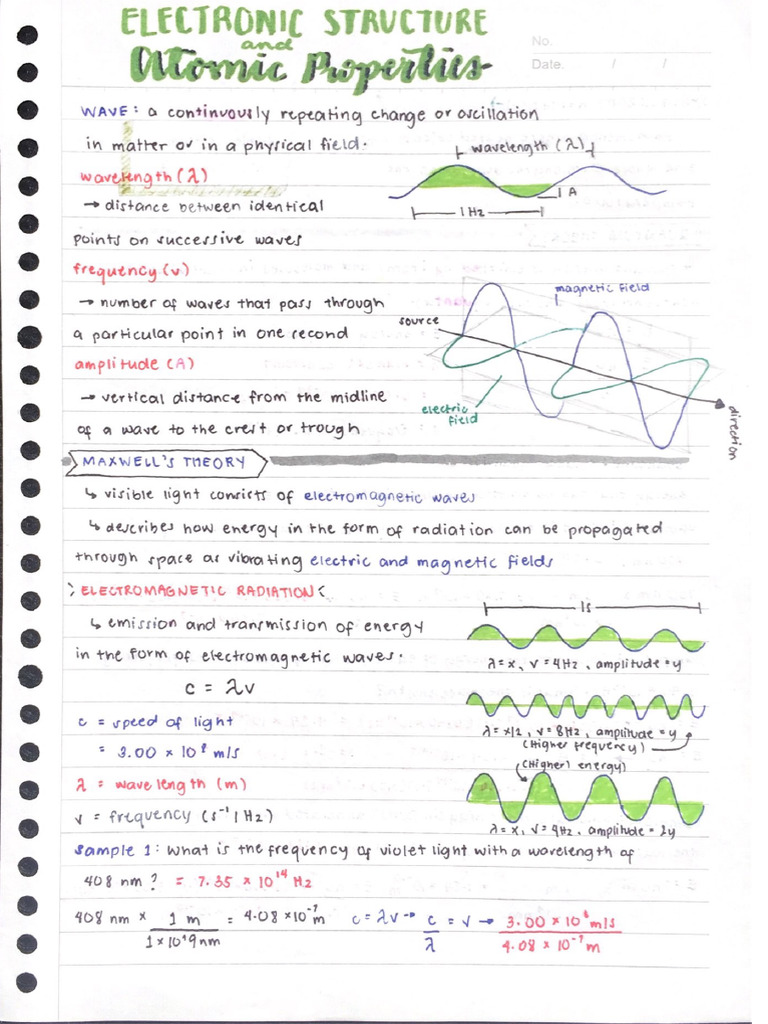 ELECTRONIC STRUCTURE
and
Atomic Properties
No.
Date. / /
WAVE: a continuously repeating change or oscillation
in matter or in a physical field.
wavelength (λ)
→ distance between identical
points on successive waves
wavelength (λ)
A
1Hz
frequency (v)
→ number of waves that pass through
a particular point in one second
amplitude (A)
→ vertical distance from the midline
of a wave to the crest or trough
magnetic field
source
electric
field
direction
MAXWELL'S THEORY
↳ visible light consists of electromagnetic waves
↳ describes how energy in the form of radiation can be propagated
through space as vibrating electric and magnetic fields
ELECTROMAGNETIC RADIATION
↳ emission and transmission of energy
in the form of electromagnetic waves.
c = λv
c = speed of light
= 3.00 × 10⁸ m/s
λ = wavelength (m)
v = frequency (s⁻¹/Hz)
1s
λ=x, v=4Hz, amplitude=y
λ=x/2, v=8Hz, amplitude=y
(Higher frequency)
(Higher energy)
λ=x, v=4Hz, amplitude=2y
Sample 1: What is the frequency of violet light with a wavelength of
408 nm? = 7.35 × 10¹⁴ Hz
408 nm × 1 m / 1×10^9 nm = 4.08×10⁻⁷ m c=λv → c/λ = v → 3.00 × 10⁸ m/s / 4.08 × 10⁻⁷ m